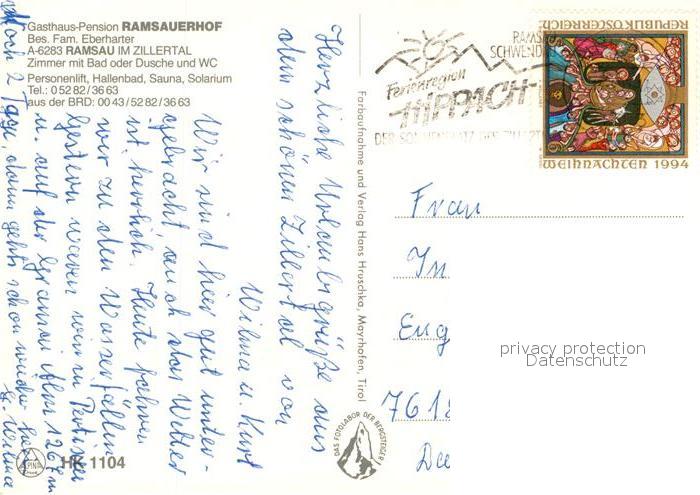 Gasthaus-Pension RAMSAUERHOF
Bes. Fam. Eberharter
A-6283 RAMSAU IM ZILLERTAL
Zimmer mit Bad oder Dusche und WC
Personenlift, Hallenbad, Sauna, Solarium
Tel.: 0 52 82 / 36 63
aus der BRD: 00 43 / 52 82 / 36 63
Herzliche Urlaubsgrüße aus
dem schönen Zillertal von
Wilma u. Kurt
Wir sind hier gut unter-
gebracht, auch das Wetter
ist herrlich. Heute fahren
wir zu den Wasserfällen
Gestern waren wir in
u. auf der Alm 1267 m
Noch 2 Tage, dann gehts schon wieder
Wilma
HK 1104
Farbaufnahme und Verlag Hans Hruschka, Mayrhofen, Tirol
DAS FOTOLABOR DER BERGSTEIGER
RAMS
SCHWEND
Ferienregion
HIPPACH
REPUBLIK ÖSTERREICH
WEIHNACHTEN 1994
Frau
In
Eug
761
privacy protection
Datenschutz